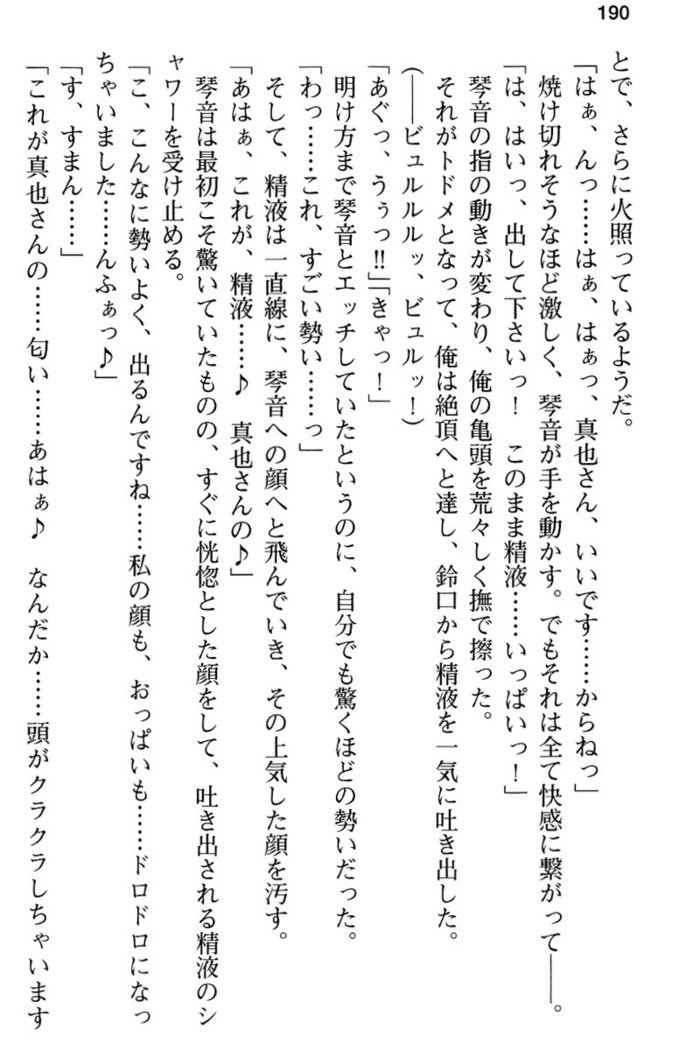 190
とで、さらに火照っているようだ。
「はぁ、んっ……はぁ、はぁっ、真也さん、いいです……からねっ」
焼け切れそうなほど激しく、琴音が手を動かす。でもそれは全て快感に繋がって――。
「は、はいっ、出して下さいっ！　このまま精液……いっぱいっ！」
琴音の指の動きが変わり、俺の亀頭を荒々しく撫で擦った。
それがトドメとなって、俺は絶頂へと達し、鈴口から精液を一気に吐き出した。
(――ビュルルルッ、ビュルッ！)
「あぐっ、うぅっ‼」「きゃっ！」
明け方まで琴音とエッチしていたというのに、自分でも驚くほどの勢いだった。
「わっ……これ、すごい勢い……っ」
そして、精液は一直線に、琴音への顔へと飛んでいき、その上気した顔を汚す。
「あはぁ、これが、精液……♪　真也さんの♪」
琴音は最初こそ驚いていたものの、すぐに恍惚とした顔をして、吐き出される精液のシ
ャワーを受け止める。
「こ、こんなに勢いよく、出るんですね……私の顔も、おっぱいも……ドロドロになっ
ちゃいました……んふぁっ♪」
「す、すまん……」
「これが真也さんの……匂い……あはぁ♪　なんだか……頭がクラクラしちゃいます